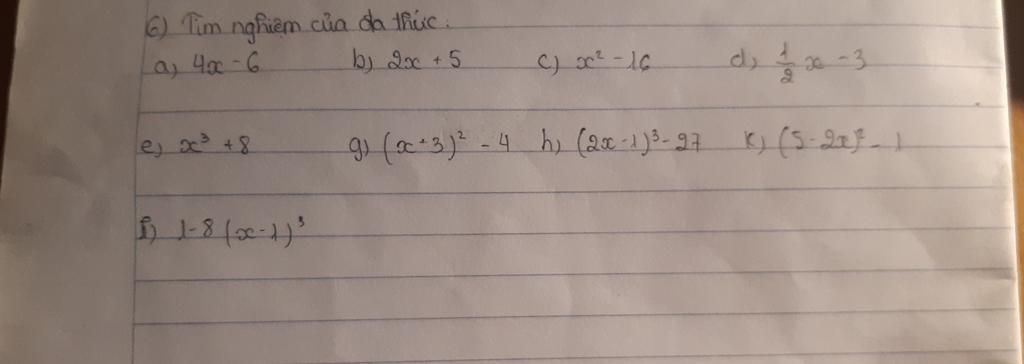 6) Tìm nghiệm của đa thức:
a) 4x - 6 b) 2x + 5 c) x² - 16 d) 1/2 x - 3
e) x³ + 8 g) (x + 3)² - 4 h) (2x - 1)³ - 27 k) (5 - 2x)² - 1
f) 1 - 8 (x - 1)³